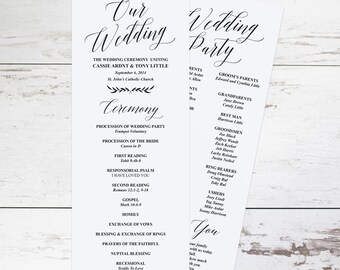 Our
Wedding
THE WEDDING CEREMONY UNITING
CASSIE ARDNT & TONY LITTLE
September 6, 2014
St. John's Catholic Church
Ceremony
PROCESSION OF WEDDING PARTY
Trumpet Voluntary
PROCESSION OF THE BRIDE
Canon in D
FIRST READING
Tobit 8:4b-8
RESPONSORIAL PSALM
I HAVE LOVED YOU
SECOND READING
Romans 12:1-2, 9-18
GOSPEL
Mark 10:6-9
HOMILY
EXCHANGE OF VOWS
BLESSING & EXCHANGE OF RINGS
PRAYERS OF THE FAITHFUL
NUPTIAL BLESSING
RECESSIONAL
Wedding
Party
PARENTS
GROOM'S PARENTS
Edward and Cynthia Little
GRANDPARENTS
Jane Brown
Candy Little
BEST MAN
Harrison Little
GROOMSMEN
Joe Black
Jeffrey Woods
Zach Becker
Jeb Harris
Justin Nailed
RING BEARERS
Craig Ruby
Toby Ruf
USHERS
Joey Lind
Tag Sunny
Mike Astor
Sonny Harrison
You